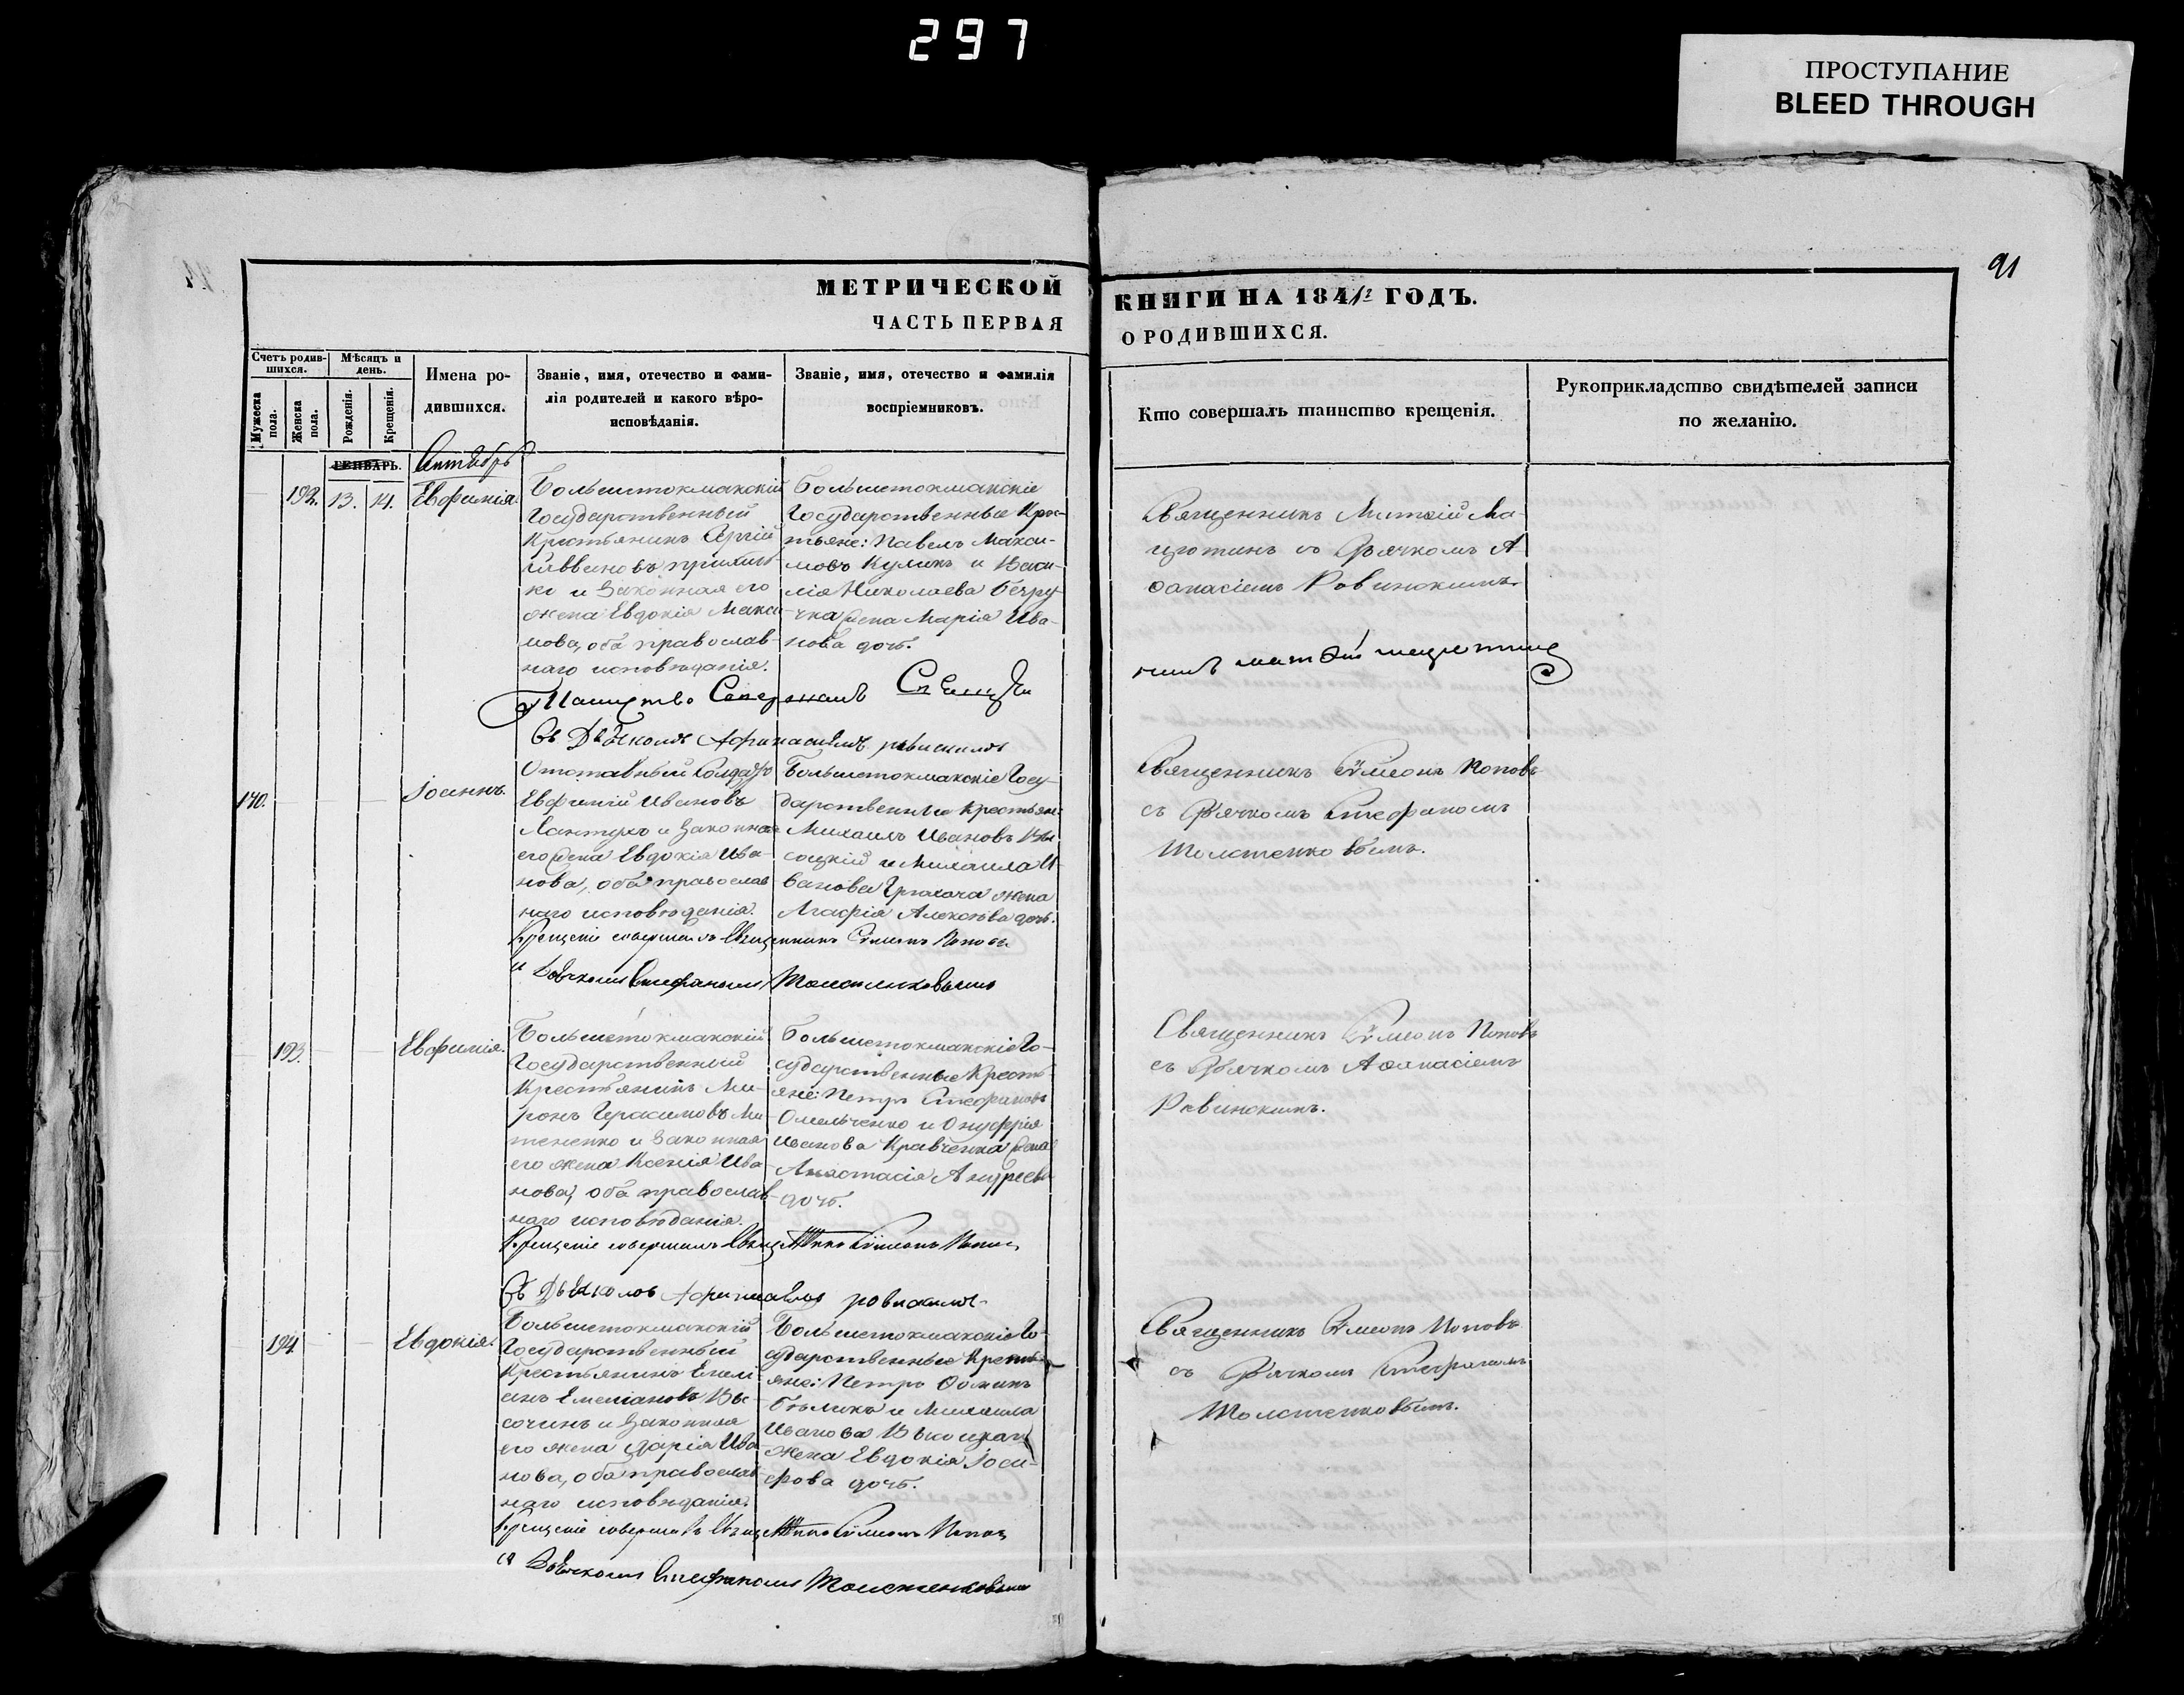 297
ПРОСТУПАНИЕ
BLEED THROUGH
91
МЕТРИЧЕСКОЙ
КНИГИ НА 1841г ГОДЪ.
ЧАСТЬ ПЕРВАЯ
О РОДИВШИХСЯ.
Счетъ родив-
шихся.
Мѣсяцъ и
день.
Мужеска
пола.
Женска
пола.
Рожденія.
Крещенія.
Имена ро-
дившихся.
Званіе, имя, отечество и фами-
лія родителей и какого вѣро-
исповѣданія.
Званіе, имя, отечество и фамилія
воспріемниковъ.
Кто совершалъ таинство крещенія.
Рукоприкладство свидѣтелей записи
по желанію.
ГЕНВАРЬ.
192.
13.
14.
Евфимія.
Большетокмакскій
Государственный
Крестьянинъ Сергій
Саввиновъ
и Законная его
жена Евдокія Макси-
мова, оба православ-
наго исповѣданія.
Большетокмакскіе
Государственные Крес-
тьяне: Павелъ Макси-
мовъ Куликъ и Васи-
лія Николаева
жена Марія Ива-
нова дочь.
Священникъ
съ Дьячкомъ А-
ѳанасіемъ Ровинскимъ.
Съ Дьячкомъ
140.
Іоаннъ.
Отставный Солдатъ
Евфимій Ивановъ
Лантухъ и Законная
его жена Евдокія Ива-
нова, оба православ
наго исповѣданія.
Большетокмакскіе Госу-
дарственные Крестьяне:
Михаилъ Ивановъ Вы-
соцкій и Михаила И-
ванова жена
Агафія Алексѣева дочь.
Священникъ Сѵмеонъ Поповъ
съ Дьячкомъ Стефаномъ
Толстенковымъ.
Крещеніе совершалъ Священникъ Сѵмеонъ Поповъ
и Дьячкомъ Стефаномъ Толстенковымъ
193.
Евфимія.
Большетокмакскій
Государственный
Крестьянинъ Ми-
ронъ Герасимовъ Ми-
тененко и Законная
его жена Ксенія Ива
нова, оба православ-
наго исповѣданія.
Большетокмакскіе Го-
сударственные Кресть-
яне: Петръ Стефановъ
Омельченко и Онуфрія
Иванова Кравченка жена
Анастасія Андреева
дочь.
Священникъ Сѵмеонъ Поповъ
съ Дьячкомъ Аѳанасіемъ
Ровинскимъ.
Крещеніе совершалъ Священникъ Сѵмеонъ Поповъ
Съ Дьячкомъ
194
Евдокія.
Большетокмакскій
Государственный
Крестьянинъ
Емеліановъ Вы-
сочинъ и Законная
его жена Дарія Ива
нова, оба православ
наго исповѣданія.
Большетокмакскіе Го-
сударственные Кресть-
яне: Петръ Ѳоминъ
Бѣликъ и Михаила
Иванова
жена Евдокія Іоси-
фова дочь.
Священникъ Сѵмеонъ Поповъ
съ Дьячкомъ Стефаномъ
Толстенковымъ.
Крещеніе совершалъ Священникъ Сѵмеонъ Поповъ
и Дьячкомъ Стефаномъ Толстенковымъ